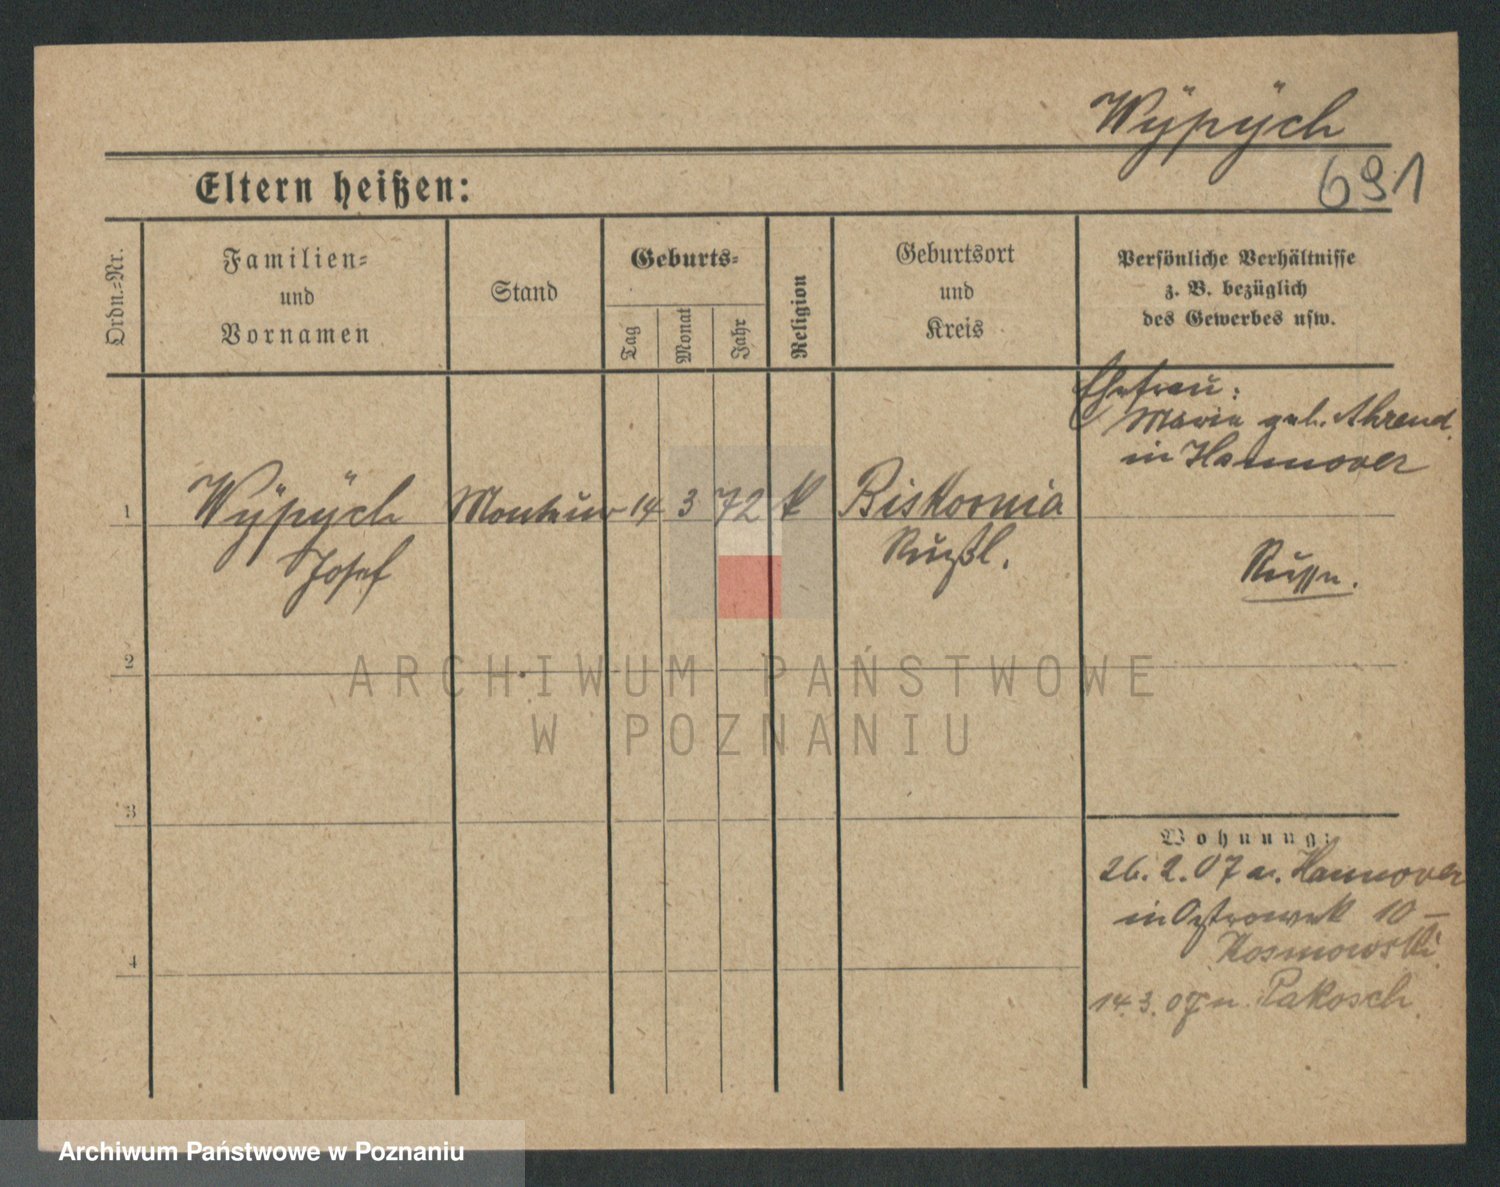 Wÿpÿch
691
Eltern heißen:
Ordn.-Nr.
Familien-
und
Vornamen
Stand
Geburts-
Tag
Monat
Jahr
Religion
Geburtsort
und
Kreis
Persönliche Verhältnisse
z. B. bezüglich
des Gewerbes usw.
Ehefrau:
Marie geb. Ahrend
in Hannover
1 Wÿpÿch Monteur 14 3 72 k Biskornia
Josef Rußl. Russe.
2
3
4
Wohnung:
26.2.07 a. Hannover
in Ostrowek 10 –
Kosmowski
14.3.07 n. Pakosch
ARCHIWUM PAŃSTWOWE
W POZNANIU
Archiwum Państwowe w Poznaniu